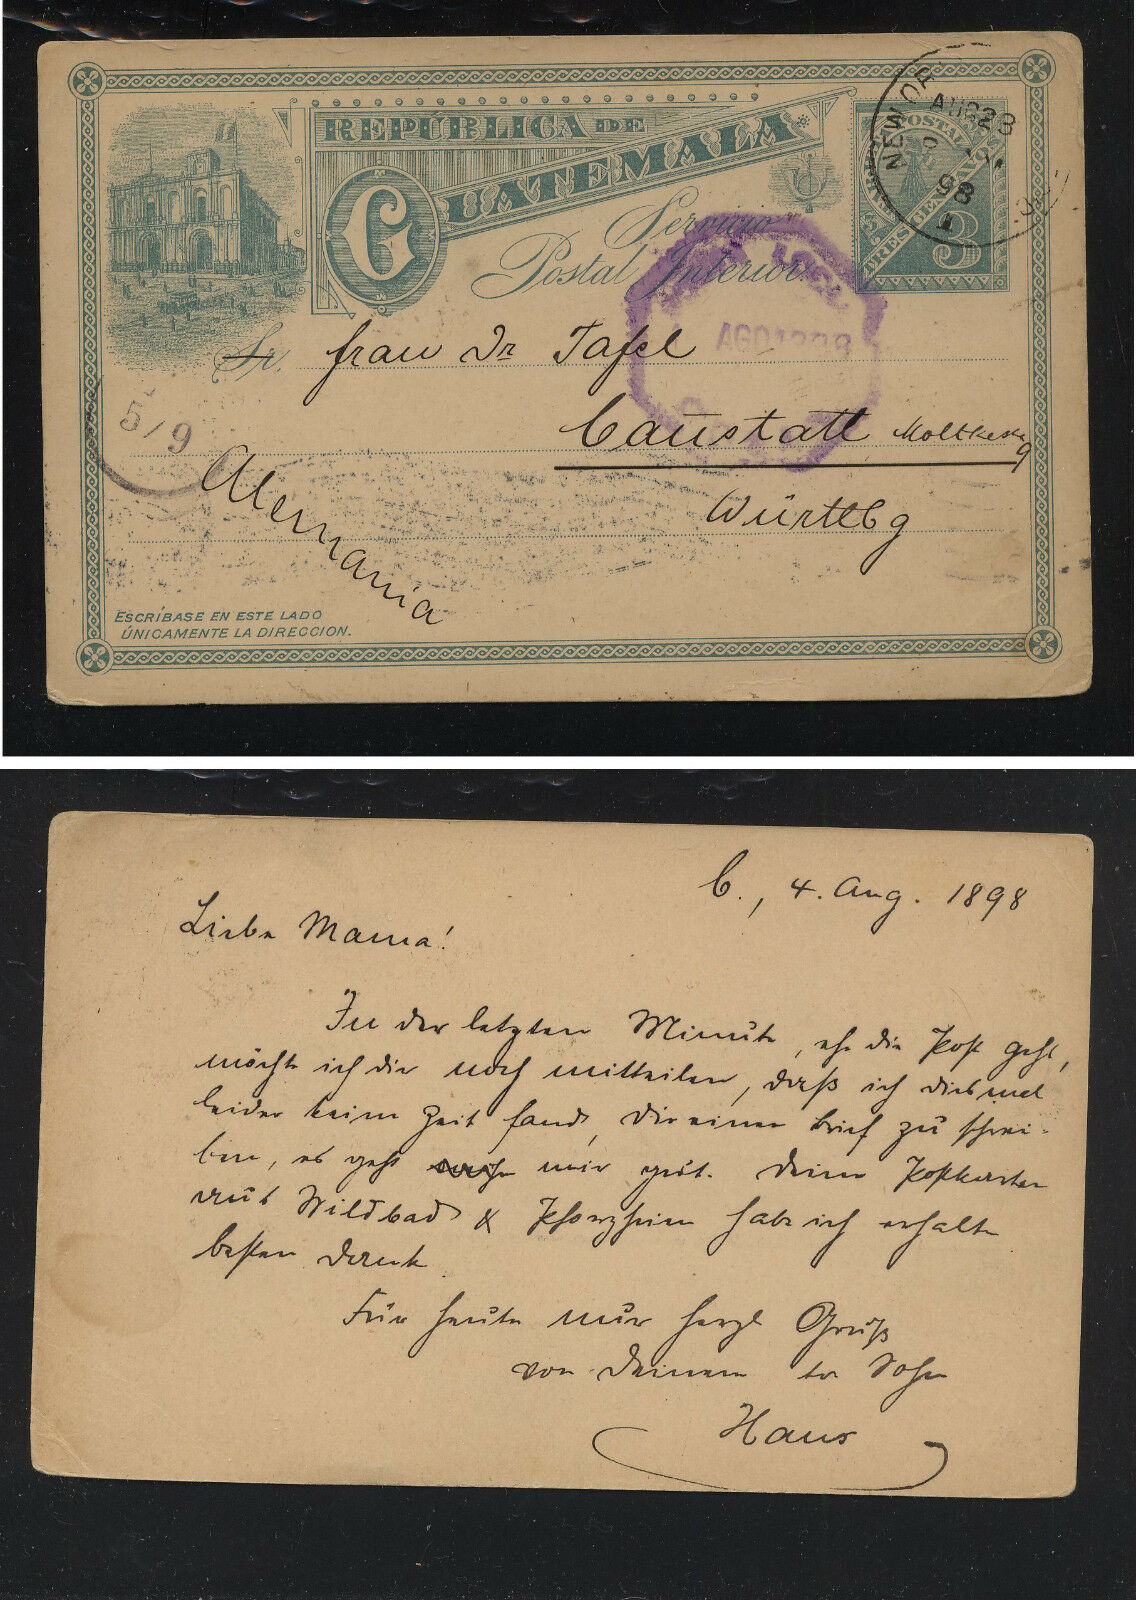 REPÚBLICA DE
GUATEMALA
Servicio
Postal Interior
POSTAL
TRES CENTAVOS
3
NEW OR
AUG 23
98
AGO 12 98
Sr. Frau Dr Tafel
Canstatt Moltkestr
9
Württbg
Alemania
5/9
ESCRÍBASE EN ESTE LADO
ÚNICAMENTE LA DIRECCION.
C., 4. Aug. 1898
Liebe Mama!
In der letzten Minute, ehe die Post geht,
möchte ich dir noch mitteilen, daß ich diesmal
leider keine Zeit fand, Dir einen Brief zu schrei-
ben, es geht mir gut. Deine Postkarten
aus Wildbad & Pforzheim habe ich erhalten
besten Dank
Für heute nur herzl Gruß
von Deinem tr Sohn
Hans